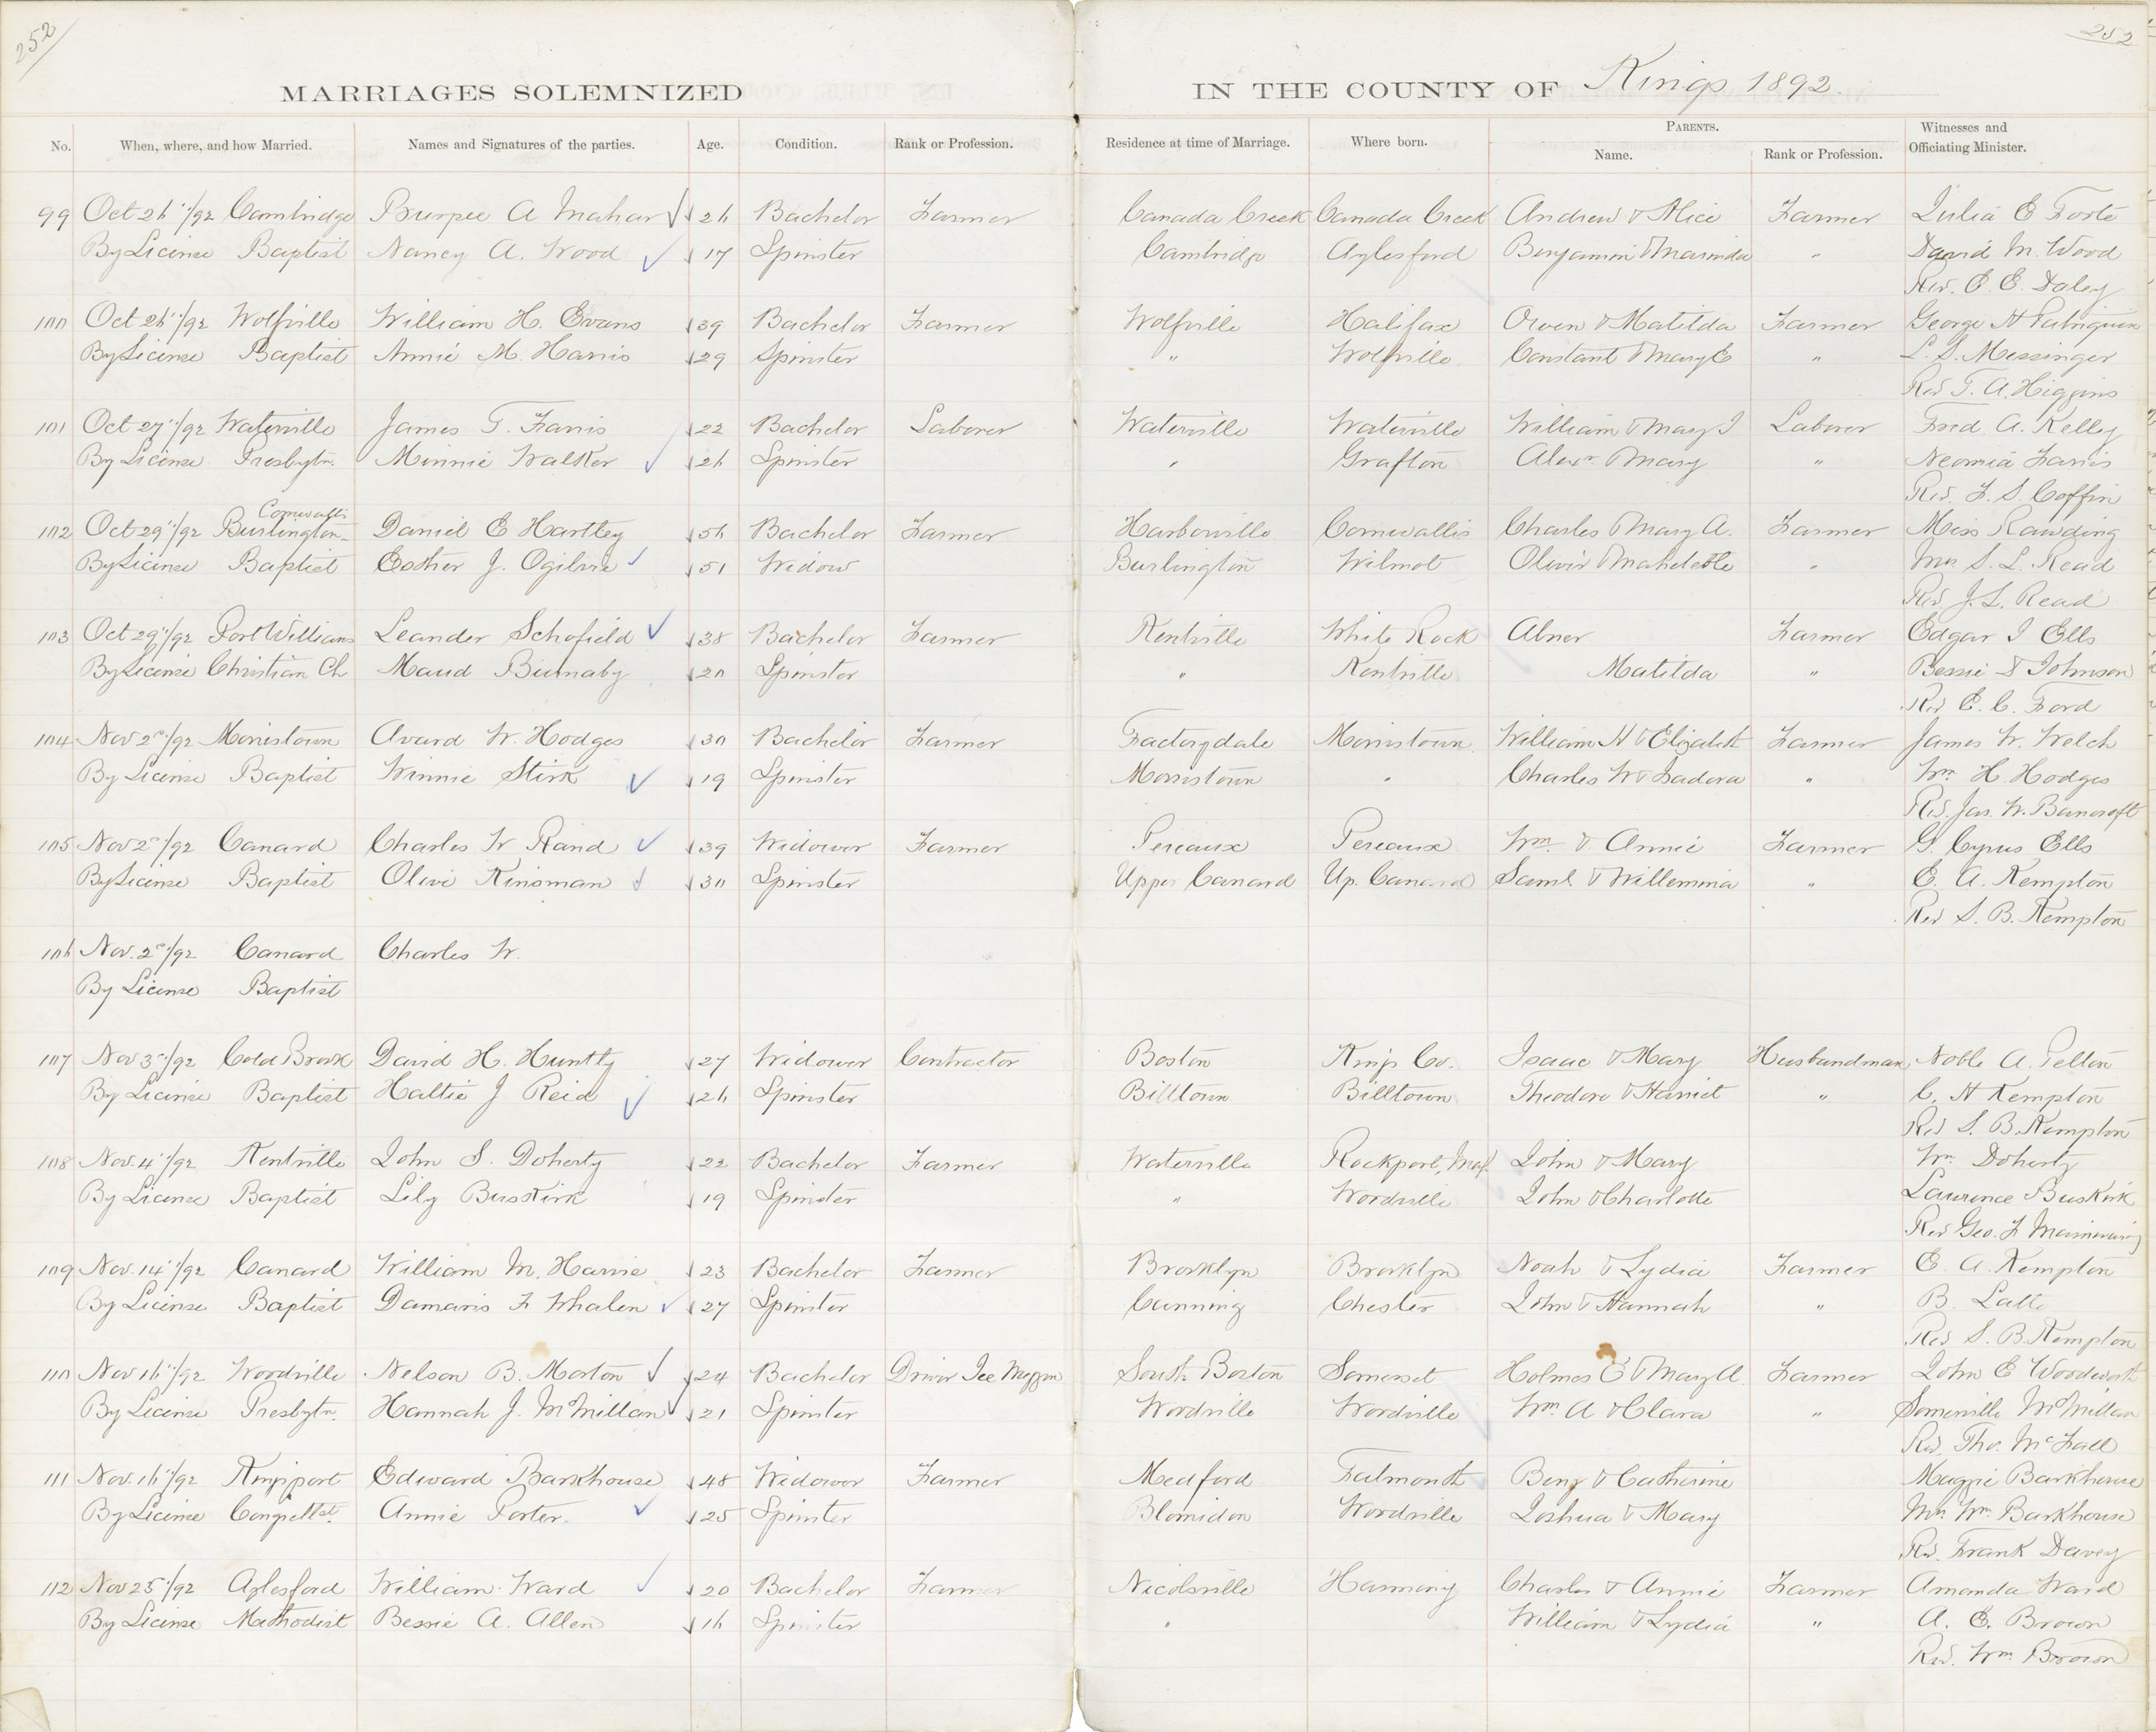 252
252
MARRIAGES SOLEMNIZED IN THE COUNTY OF Kings 1892.
No. When, where, and how Married. Names and Signatures of the parties. Age. Condition. Rank or Profession. Residence at time of Marriage. Where born. PARENTS. Name. Rank or Profession. Witnesses and Officiating Minister.
99 Oct 26"/92 Cambridge Burpee A Mahar 26 Bachelor Farmer Canada Creek Canada Creek Andrew & Alice Farmer Julia E Forte
By License Baptist Nancy A. Wood 17 Spinster Cambridge Aylesford Benjamin & Marinda " David M. Wood
Rev. E. E. Daley
100 Oct 26"/92 Wolfville William H. Evans 39 Bachelor Farmer Wolfville Halifax Owen & Matilda Farmer George H
By License Baptist Annie M. Harris 29 Spinster " Wolfville Constant & Mary E " L. S. Messinger
Rev T. A. Higgins
101 Oct 27"/92 Waterville James T. Farris 22 Bachelor Laborer Waterville Waterville William & Mary J Laborer Fred A. Kelley
By License Presbytn. Minnie Walker 26 Spinster " Grafton Alexr. & Mary " Neomia Farris
Rev. F. S. Coffin
Cornwallis
102 Oct 29"/92 Burlington Daniel E Hartley 56 Bachelor Farmer Harborville Cornwallis Charles & Mary A. Farmer Miss Rawding
By License Baptist Esther J. Ogilvie 51 Widow Burlington Wilmot Oliver & " Mrs S. L. Read
Rev J. L. Read
103 Oct 29"/92 Port Williams Leander Schofield 38 Bachelor Farmer Kentville White Rock Abner Farmer Edgar J Ells
By License Christian Ch Maud Burnaby 20 Spinster " Kentville Matilda " Bessie S Johnson
Rev E. C. Ford
104 Nov 2nd/92 Morristown Avard W. Hodges 30 Bachelor Farmer Factorydale Morristown William H & Elizabeth Farmer James W. Welch
By License Baptist Winnie Stirk 19 Spinster Morristown " Charles W & Isadora " Wm H. Hodges
Rev. Jas. W. Bancroft
105 Nov 2nd/92 Canard Charles W Rand 39 Widower Farmer Pereaux Pereaux Wm. & Annie Farmer G. Cyrus Ells
By License Baptist Olivi Kinsman 30 Spinster Upper Canard Up. Canard Saml. & Willemina " E. A. Kempton
Rev S. B. Kempton
106 Nov. 2nd/92 Canard Charles W.
By License Baptist
107 Nov 3rd/92 Cold Brook David H. Huntly 27 Widower Contractor Boston Kings Co. Isaac & Mary Husbandman Noble A. Pelton
By License Baptist Hattie J Reid 26 Spinster Billtown Billtown Theodore & Harriet " C. H Kempton
Rev S. B. Kempton
108 Nov. 4"/92 Kentville John S. Doherty 22 Bachelor Farmer Waterville Rockport, Mass. John & Mary Wm. Doherty
By License Baptist Lily Busskirk 19 Spinster " Woodville John & Charlotte Lawrence Buskirk
Rev Geo. F
109 Nov. 14"/92 Canard William M. Harvie 23 Bachelor Farmer Brooklyn Brooklyn Noah & Lydia Farmer E. A. Kempton
By License Baptist Damaris F Whalen 27 Spinster Canning Chester John & Hannah " B.
Rev S. B. Kempton
110 Nov 16"/92 Woodville Nelson B. Morton 24 Bachelor Driver Ice Waggon South Boston Somerset Holmes E & Mary A Farmer John E Woodworth
By License Presbytn. Hannah J. McMillan 21 Spinster Woodville Woodville Wm A & Clara " Somerville McMillan
Rev. Tho. McFall
111 Nov. 16"/92 Kingsport Edward Barkhouse 48 Widower Farmer Medford Falmouth Benj & Catherine Maggie Barkhouse
By License Congrellst. Annie Porter. 25 Spinster Blomidon Woodville Joshua & Mary Mrs Wm. Barkhouse
Rev. Frank Davey
112 Nov 25"/92 Aylesford William Ward 20 Bachelor Farmer Nicolsville Harmony Charles & Annie Farmer Amanda Ward
By License Methodist Bessie A. Allen 16 Spinster " William & Lydia " A. E. Brown
Rev. Wm. Brown